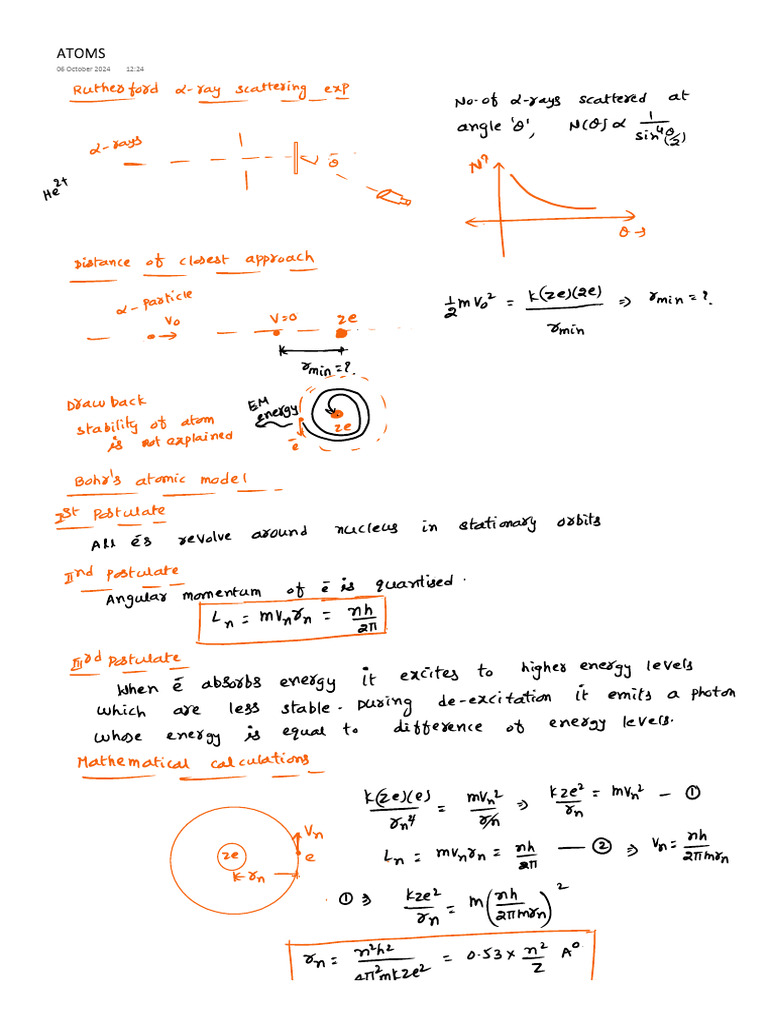 ATOMS
06 October 2024 12:24
Rutherford α-ray scattering exp
α-rays
He²⁺
θ
No. of α-rays scattered at
angle 'θ', N(θ) ∝ 1/sin⁴(θ/2)
N?
θ →
Distance of closest approach
α-particle
V₀
V=0
ze
r_min = ?.
½mV₀² = k(ze)(2e)/r_min ⇒ r_min = ?.
Drawback
stability of atom
is not explained
EM
energy
ze
ē
Bohr's atomic model
Ist Postulate
All ēs revolve around nucleus in stationary orbits
IInd Postulate
Angular momentum of ē is quantised.
Lₙ = mVₙrₙ = nh/2π
IIIrd Postulate
When ē absorbs energy it excites to higher energy levels
which are less stable. During de-excitation it emits a photon
whose energy is equal to difference of energy levels.
Mathematical calculations
ze
rₙ
Vₙ
e
k(ze)(e)/rₙ = mVₙ²/rₙ ⇒ kze²/rₙ = mVₙ² — ①
Lₙ = mVₙrₙ = nh/2π — ② ⇒ Vₙ = nh/2πmrₙ
① ⇒ kze²/rₙ = m(nh/2πmrₙ)²
rₙ = n²h²/4π²mkze² = 0.53 × n²/Z A⁰